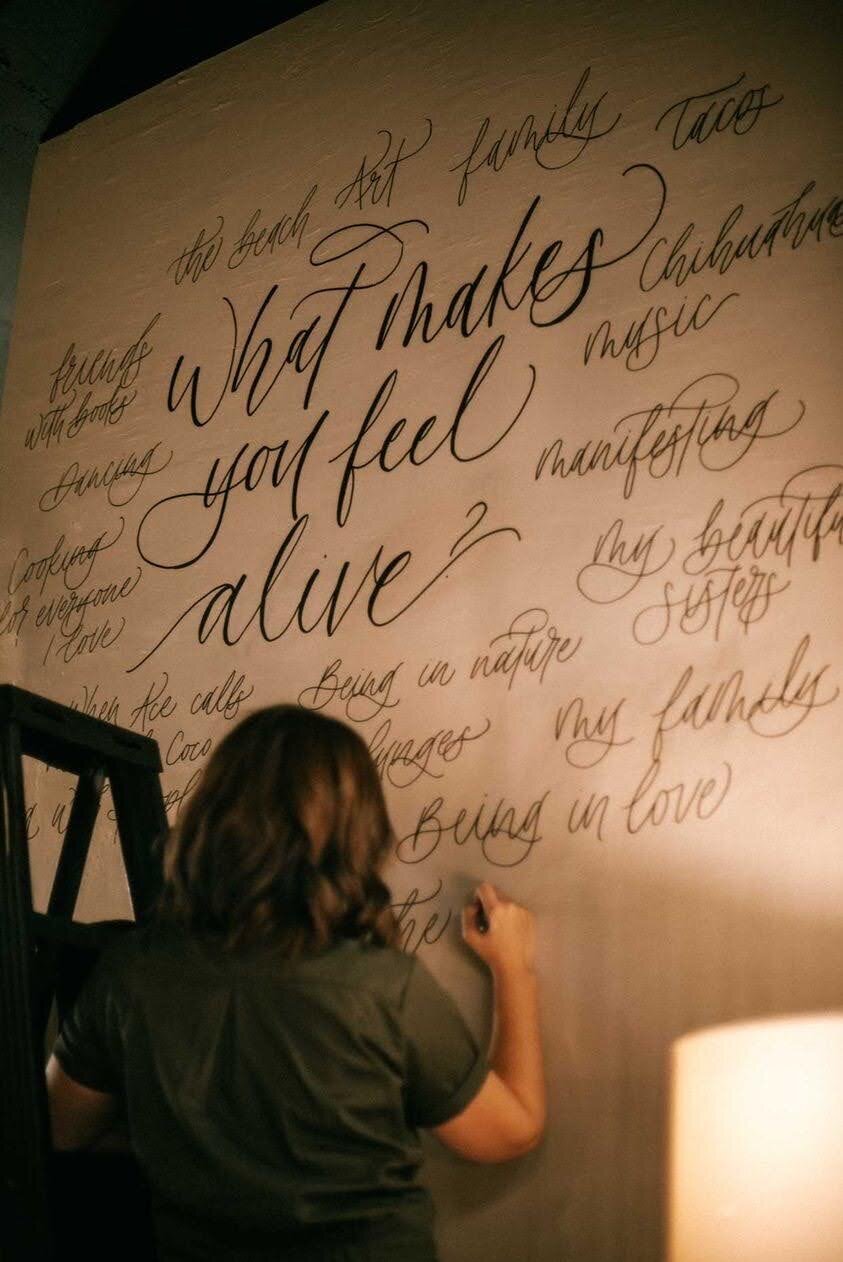 the beach Art family Tacos
What makes
you feel
alive?
Chihuahuas
music
friends
with books
Dancing
manifesting
Cooking
for everyone
I love
my beautiful
sisters
When Ace calls
Coco
Being in nature
my family
Being in love
the